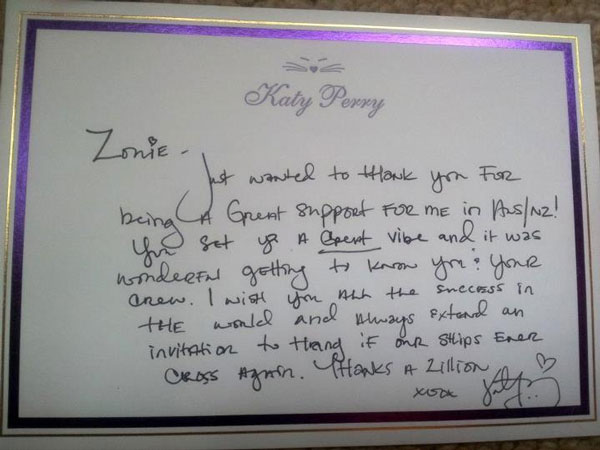 Katy Perry
Zonie -
Just wanted to thank you FOR
being A Great support FOR me in Aus/NZ!
You set up A Great vibe and it was
wonderful getting to know you & your
crew. I wish you all the success in
THE world and Always Extend an
invitation to Hang if our ships Ever
Cross Again. Thanks A Zillion
xoxo Katy